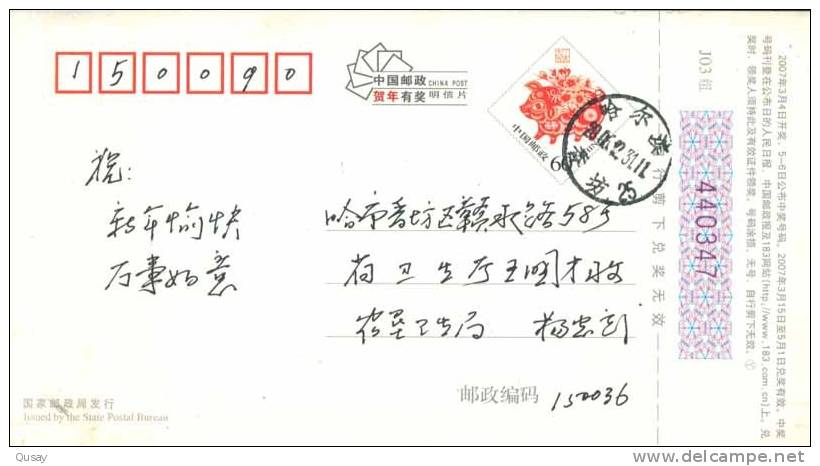 150090
中国邮政 CHINA POST
贺年有奖 明信片
中国邮政 60
哈尔滨
祝:
新年愉快
万事如意
哈市香坊区赣水路585
省卫生厅王国才收
农垦卫生局
邮政编码 150036
国家邮政局发行
Issued by the State Postal Bureau
行剪下兑奖无效
J03组
440347
2007年3月4日开奖,5-6日公布中奖号码。2007年3月15日至5月1日兑奖有效。中奖
号码刊登在公布日的人民日报、中国邮政报及183网站(http://www.183.com.cn)上。兑
奖时,领奖人须持此及有效证件领奖。号码涂损、无号、自行剪下无效。
Qusay
delcampe.net